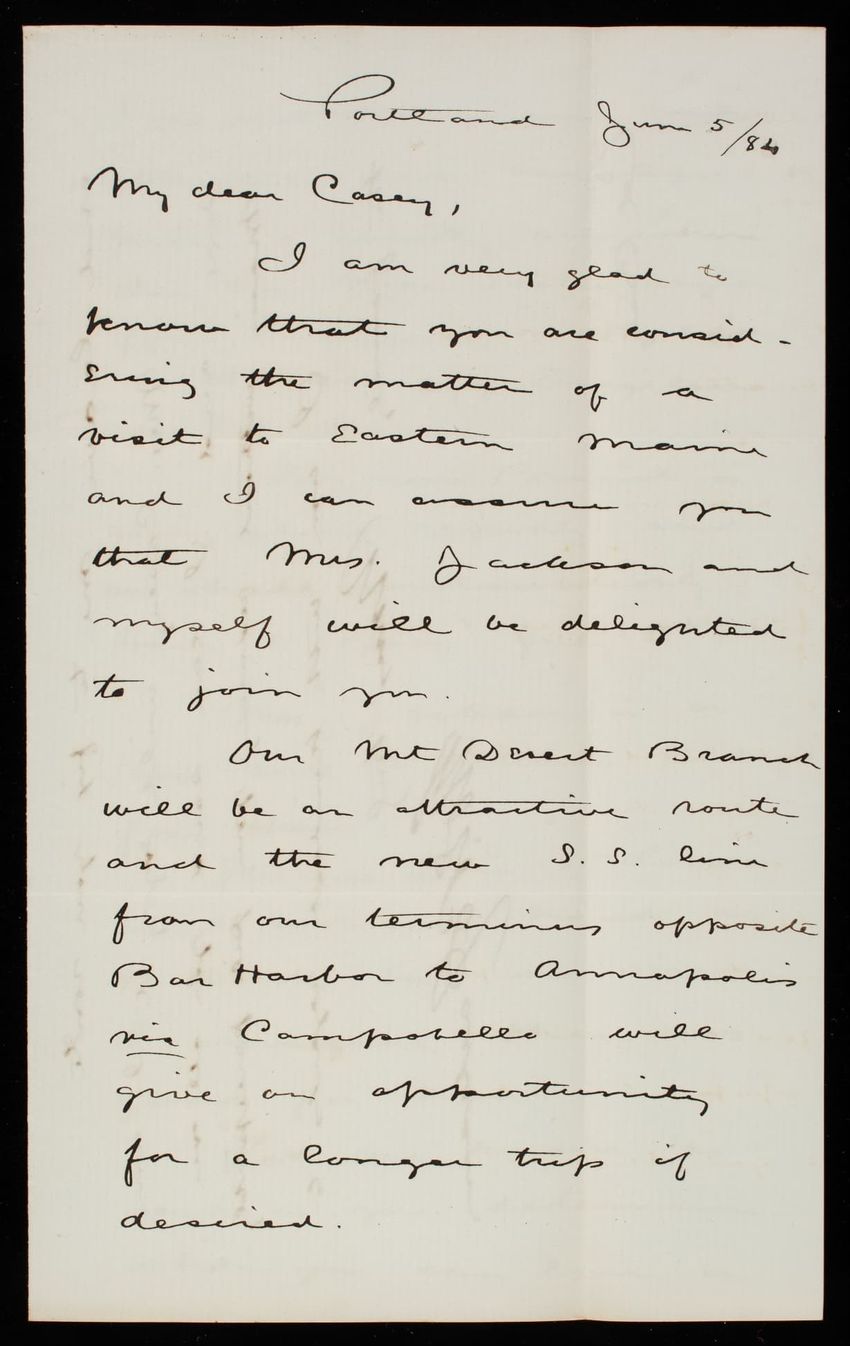 Portland June 5/84
My dear Casey,
I am very glad to
know that you are consid-
ering the matter of a
visit to Eastern Maine
and I can assure you
that Mrs. Jackson and
myself will be delighted
to join you.
Our Mt Desert Branch
will be an attractive route
and the new S. S. line
from our terminus opposite
Bar Harbor to Annapolis
via Campobello will
give an opportunity
for a longer trip if
desired.